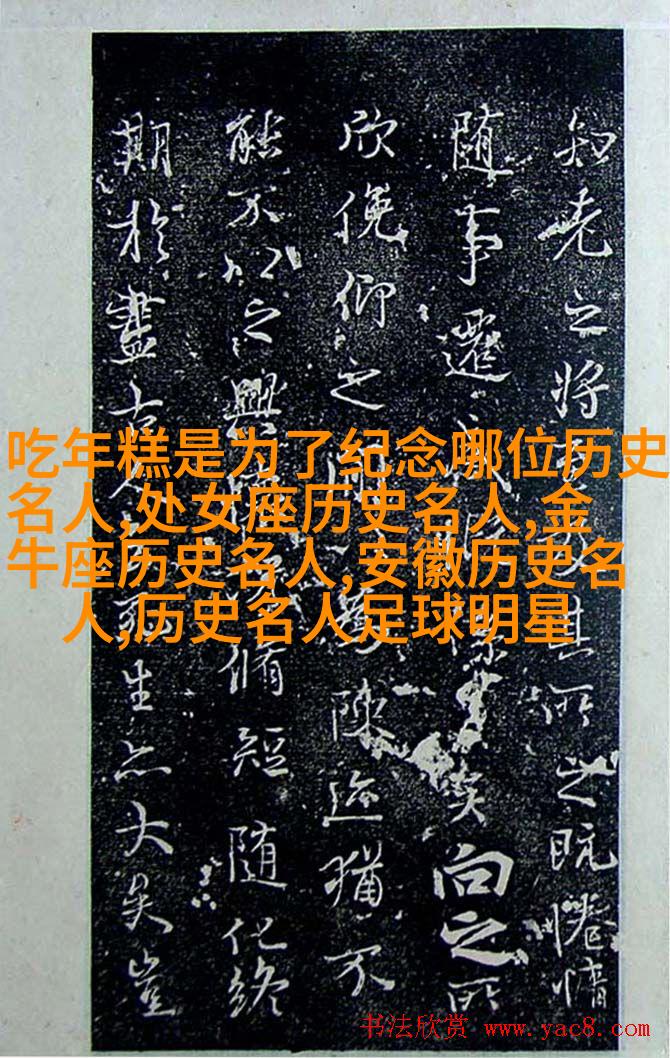 知老之將其所之既惓情
随事遷係之矣向之所
欣俛仰之間陳迹猶不
能不以之興脩短随化終
期於盡古人云死生亦大矣豈
吃年糕是为了纪念哪位历史
名人,处女座历史名人,金
牛座历史名人,安徽历史名
人,历史名人足球明星
书法欣赏 www.yac8.com